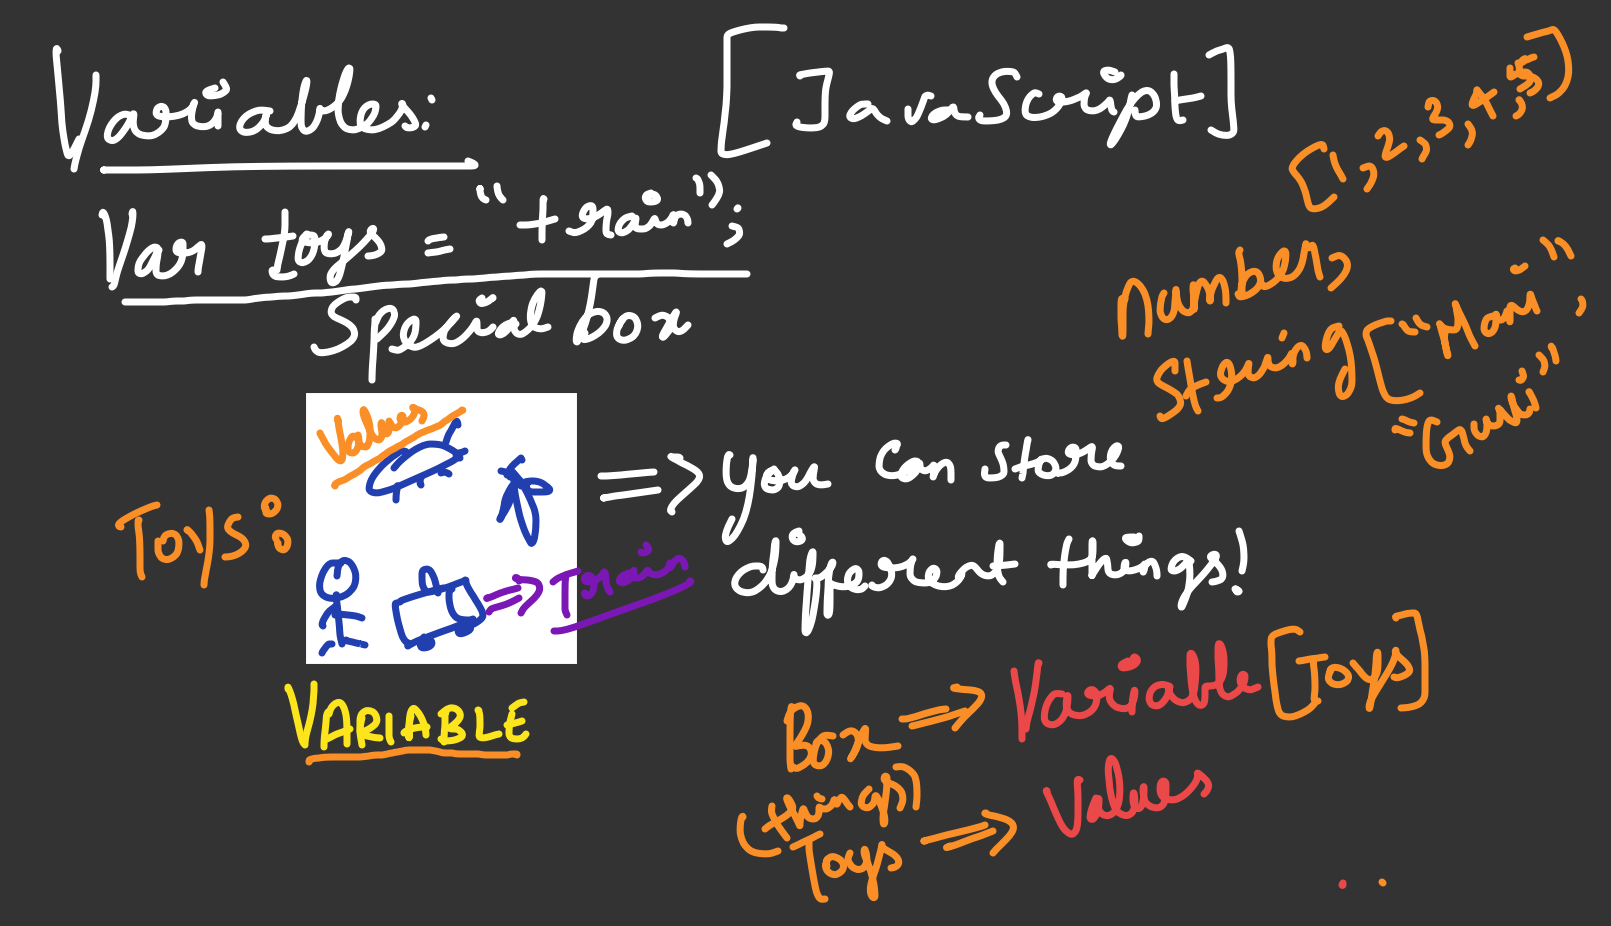 Variables:
[JavaScript]
Var toys = "train";
Special box
[1,2,3,4,5]
Number,
String ["Mani",
"Guri"
Values
Toys:
Train
VARIABLE
=> You can store
different things!
Box => Variable [Toys]
(things)
Toys => Values